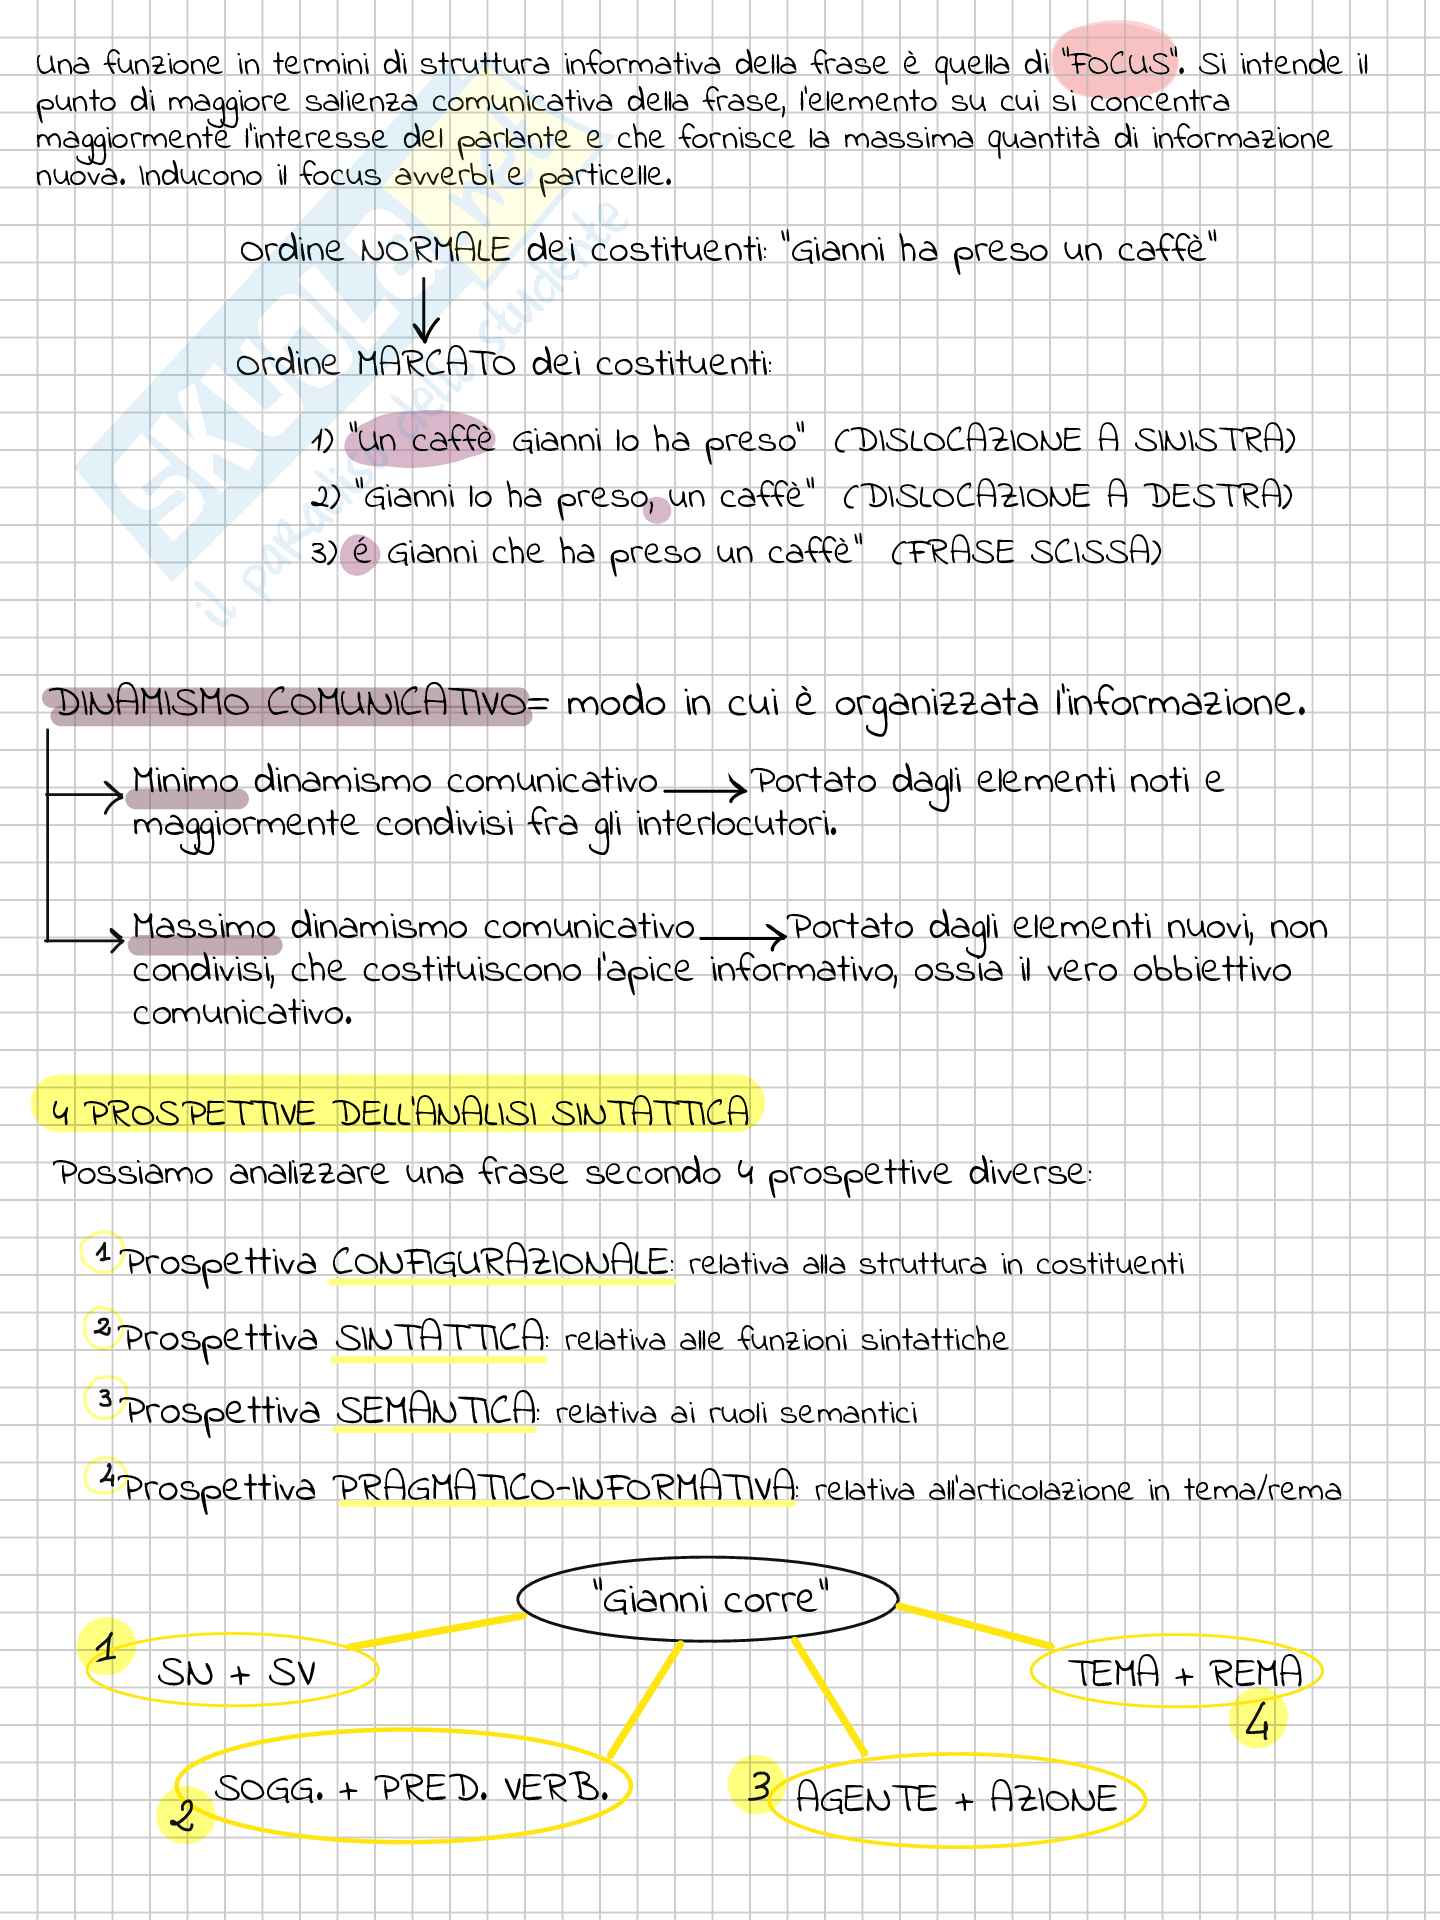 Una funzione in termini di struttura informativa della frase è quella di "FOCUS". Si intende il
punto di maggiore salienza comunicativa della frase, l'elemento su cui si concentra
maggiormente l'interesse del parlante e che fornisce la massima quantità di informazione
nuova. Inducono il focus avverbi e particelle.
Ordine NORMALE dei costituenti: "Gianni ha preso un caffè"
Ordine MARCATO dei costituenti:
1) "Un caffè Gianni lo ha preso" (DISLOCAZIONE A SINISTRA)
2) "Gianni lo ha preso, un caffè" (DISLOCAZIONE A DESTRA)
3) é Gianni che ha preso un caffè" (FRASE SCISSA)
SKUOLA.net
il paradiso dello studente
DINAMISMO COMUNICATIVO= modo in cui è organizzata l'informazione.
Minimo dinamismo comunicativo → Portato dagli elementi noti e
maggiormente condivisi fra gli interlocutori.
Massimo dinamismo comunicativo → Portato dagli elementi nuovi, non
condivisi, che costituiscono l'apice informativo, ossia il vero obbiettivo
comunicativo.
4 PROSPETTIVE DELL'ANALISI SINTATTICA
Possiamo analizzare una frase secondo 4 prospettive diverse:
1 Prospettiva CONFIGURAZIONALE: relativa alla struttura in costituenti
2 Prospettiva SINTATTICA: relativa alle funzioni sintattiche
3 Prospettiva SEMANTICA: relativa ai ruoli semantici
4 Prospettiva PRAGMATICO-INFORMATIVA: relativa all'articolazione in tema/rema
"Gianni corre"
1 SN + SV
TEMA + REMA 4
2 SOGG. + PRED. VERB.
3 AGENTE + AZIONE